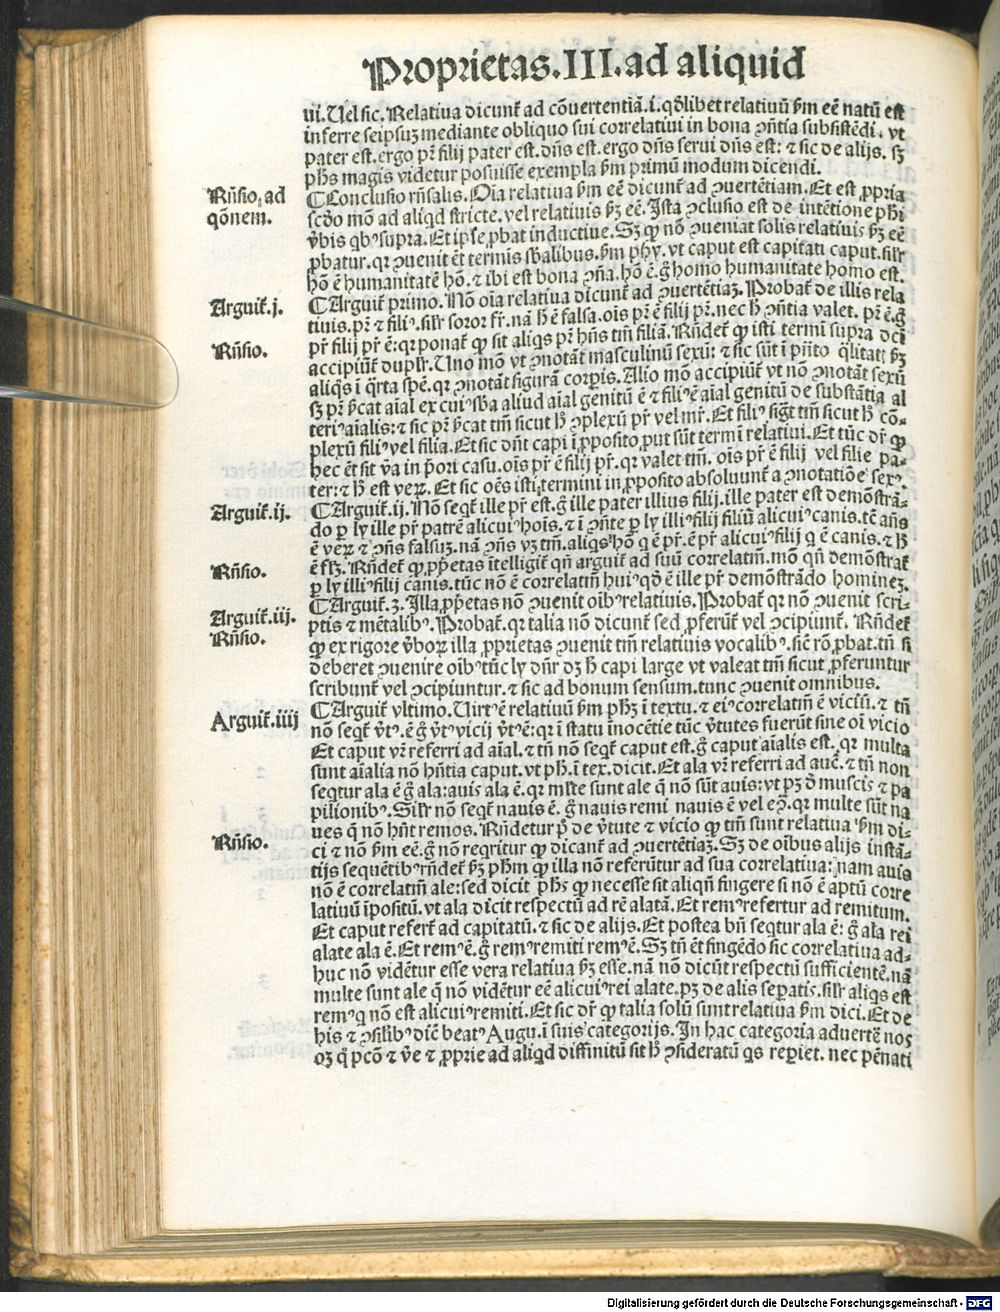 Proprietas.III.ad aliquid
ui. Uel sic. Relatiua dicunt᷑ ad cōuertentiā.i.qd̄libet relatiuū ẜm eē natū est
inferre seipsuȝ mediante obliquo sui correlatiui in bona ꝯn̄tia subsistēdi. vt
pater est.ergo pr̄ filij pater est. dn̄s est.ergo dn̄s serui dn̄s est: ⁊ sic de alijs. sȝ
ph̄s magis videtur posuisse exempla ẜm primū modum dicendi.
Rn̄sio.ad
qōnem.
¶Conclusio rn̄salis. Oīa relatiua ẜm eē dicunt᷑ ad ꝯuertētiam. Et est ꝓpria
scd̄o mō ad aliqd stricte. vel relatiuis ẜȝ eē. Ista ꝯclusio est de intētione ph̄i
v̄bis qbꝰ supra. Et ipse ꝓbat inductiue. Sȝ ꝙ nō ꝯueniat solis relatiuis ẜȝ eē
ꝓbatur. qꝛ ꝯuenit ēt termīs sb̄alibus. ẜm phȳ. vt caput est capitati caput. sil̄r
hō ē humanitatē hō. ⁊ ibi est bona ꝯn̄a. hō ē. g̊ homo humanitate homo est.
Arguit᷑.j.
¶Arguit᷑ primo. Nō oīa relatiua dicunt᷑ ad ꝯuertētiaȝ. Probat᷑ de illis rela
tiuis. pr̄ ⁊ filiꝰ. sil̄r soror fr̄. nā h̄ ē falsa. oīs pr̄ ē filij pr̄. nec h̄ ꝯn̄tia valet. pr̄ ē. g̊
Rn̄sio.
pr̄ filij pr̄ ē: qꝛ ponat᷑ ꝙ sit aliqs pr̄ hn̄s tm̄ filiā. Rn̄det᷑ ꝙ isti termī supra dc̄i
accipiūt᷑ dupl̄r. Uno mō vt ꝯnotāt masculinū sexū: ⁊ sic sūt ī pn̄to q̄litat; ẜȝ
aliq̄s ī q̄rta spē. qꝛ ꝯnotāt figurā corꝑis. Alio mō accipiūt᷑ vt nō ꝯnotāt sexū
sȝ pr̄ p̄cat aīal ex cuiꝰ sb̄a aliud aīal genitū ē ⁊ filiꝰ ē aīal genitū de substātia al
teriꝰ aīalis: ⁊ sic pr̄ p̄cat tm̄ sicut h̄ ꝯplexū pr̄ vel mr̄. Et filiꝰ sigt᷑ tm̄ sicut h̄ cō-
plexū filiꝰ vel filia. Et sic dn̄t capi ī ꝓposito, put sūt termī relatiui. Et tūc dr̄ ꝙ
hec ēt sit v̄a in pōri casu. oīs pr̄ ē filij pr̄. qꝛ valet tm̄. oīs pr̄ ē filij vel filie pa-
ter: ⁊ h̄ est veꝝ. Et sic oēs isti termini in ꝓposito absoluunt᷑ a ꝯnotatiōe sexꝰ.
Arguit᷑.ij.
¶Arguit᷑.ij. Nō seqt᷑ ille pr̄ est. g̊ ille pater illius filij. ille pater est demōstrā-
do ꝑ ly ille pr̄ patrē alicuiꝰ hoīs. ⁊ ī ꝯn̄te ꝑ ly illiꝰ filij filiū alicuiꝰ canis. tē an̄s
ē veꝝ ⁊ ꝯn̄s falsuȝ. nā ꝯn̄s vȝ tm̄. aliqs hō q ē pr̄. ē pr̄ alicuiꝰ filij q ē canis. ⁊ h̄
Rn̄sio.
ē fl̄ȝ. Rn̄det᷑ ꝙ ꝓp̄etas ītelligit᷑ qn̄ arguit᷑ ad suū correlatm̄. mō qn̄ demōstrat᷑
ꝑ ly illiꝰ filij canis. tūc nō ē correlatm̄ huiꝰ qd̄ ē ille pr̄ demōstrādo homineȝ.
Arguit᷑.iij.
Rn̄sio.
¶Arguit᷑.3. Illa ꝓp̄etas nō ꝯuenit oībꝰ relatiuis. Probat᷑ qꝛ nō ꝯuenit scri-
ptis ⁊ mētalibꝰ. Probat᷑. qꝛ talia nō dicunt᷑ sed ꝓferūt᷑ vel ꝯcipiunt᷑. Rn̄det᷑
ꝙ ex rigore v̄boꝝ illa ꝓprietas ꝯuenit tm̄ relatiuis vocalibꝰ. sic̄ rō ꝓbat. tn̄ si
deberet ꝯuenire oībꝰ tūc ly dn̄r dȝ h̄ capi large vt valeat tm̄ sicut ꝓferuntur
scribunt᷑ vel ꝯcipiuntur. ⁊ sic ad bonum sensum. tunc ꝯuenit omnibus.
Arguit᷑.iiij
¶Arguit᷑ vltimo. Uirtꝰ ē relatiuū ẜm ph̄ȝ ī textu. ⁊ eiꝰ correlatm̄ ē viciū. ⁊ tn̄
nō seqt᷑ v̄tꝰ. ē g̊ v̄tꝰ vicij v̄tꝰ ē: qꝛ ī statu īnocētie tūc v̄tutes fuerūt sine oī vicio
Et caput vr̄ referri ad aīal. ⁊ tn̄ nō seqt᷑ caput est. g̊ caput aīalis est. qꝛ multa
sunt aīalia nō hn̄tia caput. vt ph̄. ī tex. dicit. Et ala vr̄ referri ad auē. ⁊ tn̄ non
seqtur ala ē g̊ ala: auis ala ē. qꝛ ml̄te sunt ale q̄ nō sūt auis: vt pȝ d̄ muscis ⁊ pa
pilionibꝰ. Sil̄r nō seqt᷑ nauis ē. g̊ nauis remi nauis ē vel eꝯ̄. qꝛ multe sūt na
ues q̄ nō hn̄t remos. Rn̄detur p̊ de v̄tute ⁊ vicio ꝙ tm̄ sunt relatiua ẜm di-
Rn̄sio.
ci ⁊ nō ẜm eē. g̊ nō reqritur ꝙ dicant᷑ ad ꝯuertētiaȝ. Sȝ de oībus alijs instā-
tijs sequētibꝰ rn̄det᷑ ẜȝ ph̄m ꝙ illa nō referūtur ad sua correlatiua: nam auis
nō ē correlatm̄ ale: sed dicit ph̄s ꝙ necesse sit aliqn̄ fingere si nō ē aptū corre
latiuū īpositū. vt ala dicit respectū ad rē alatā. Et remꝰ refertur ad remitum.
Et caput refert᷑ ad capitatū. ⁊ sic de alijs. Et postea bn̄ seqtur ala ē: g̊ ala rei
alate ala ē. Et remꝰ ē. g̊ remꝰ remiti remꝰ ē. Sȝ tn̄ ēt fingēdo sic correlatiua ad-
huc nō vidētur esse vera relatiua ẜȝ esse. nā nō dicūt respectū sufficientē. nā
multe sunt ale q̄ nō vidētur eē alicuiꝰ rei alate. pȝ de alis seꝑatis. sil̄r aliqs est
remꝰ q nō est alicuiꝰ remiti. Et sic dr̄ ꝙ talia solū sunt relatiua ẜm dici. Et de
his ⁊ ꝯsil̄ibꝰ dic̄ beatꝰ Augu. ī suis categorijs. In hac categoria aduertē nos
oȝ q̊ pcō ⁊ v̄e ⁊ ꝓprie ad aliqd diffinitū sit h̄ ꝯsideratū qs reꝑiet. nec pēnati
Digitalisierung gefördert durch die Deutsche Forschungsgemeinschaft - DFG